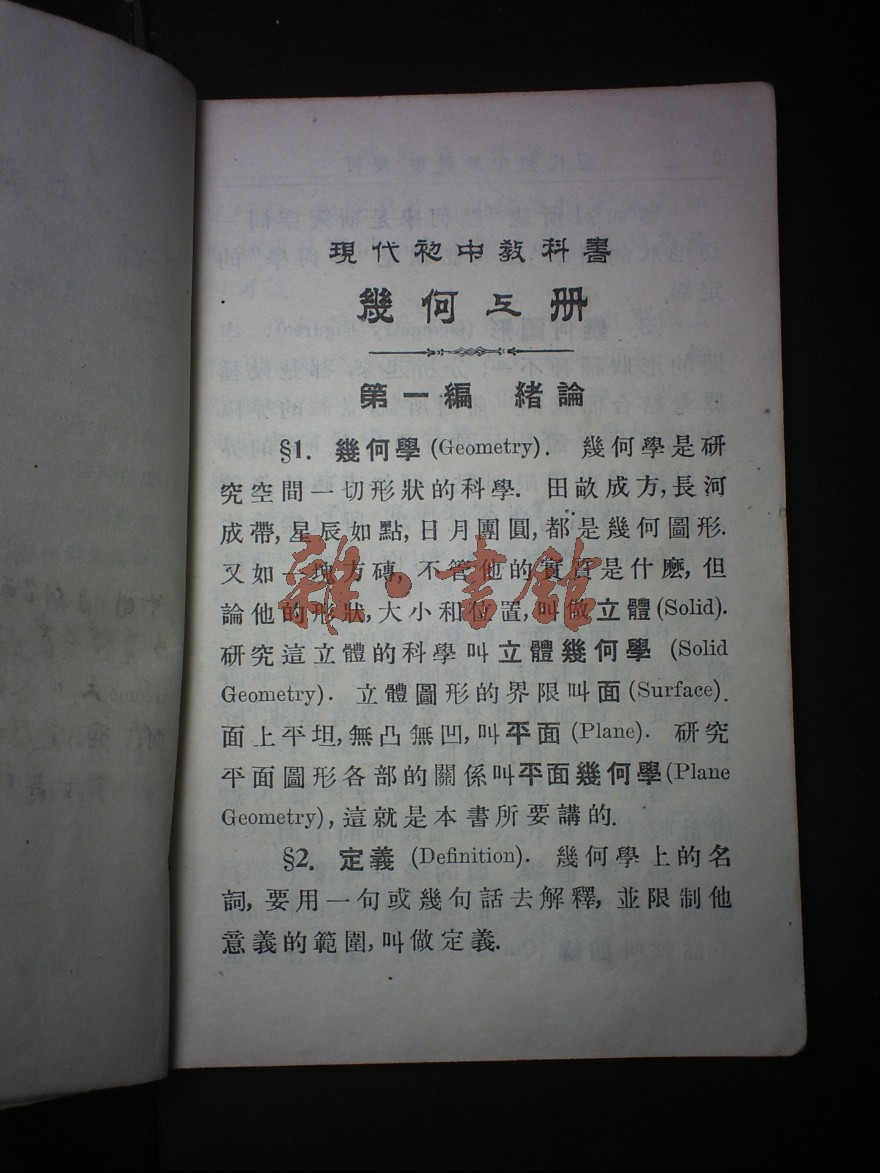 現代初中教科書
幾何上册
第一編 緒論
§1. 幾何學 (Geometry). 幾何學是研
究空間一切形狀的科學. 田畝成方, 長河
成帶, 星辰如點, 日月團圓, 都是幾何圖形.
又如一塊方磚, 不管他的實質是什麼, 但
論他的形狀, 大小和位置, 叫做立體 (Solid).
研究這立體的科學叫立體幾何學 (Solid
Geometry). 立體圖形的界限叫面 (Surface).
面上平坦, 無凸無凹, 叫平面 (Plane). 研究
平面圖形各部的關係叫平面幾何學 (Plane
Geometry), 這就是本書所要講的.
§2. 定義 (Definition). 幾何學上的名
詞, 要用一句或幾句話去解釋, 並限制他
意義的範圍, 叫做定義.
雜·書館